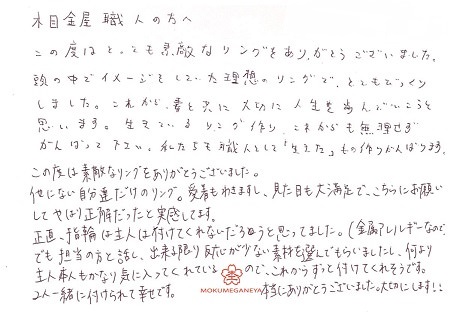 木目金屋 職人の方へ
この度はとっても素敵なリングをありがとうございました。
頭の中でイメージをしていた理想のリングで、とてもびっくり
しました。これから、妻と共に大切に人生を歩んでいこうと
思います。生きているリング作り、これからも無理せず
がんばって下さい。私たちも職人として「生きた」もの作りがんばります。
この度は素敵なリングをありがとうございました。
他にない自分達だけのリング。愛着もわきますし、見た目も大満足で、こちらにお願い
してやはり正解だったと実感してます。
正直、指輪は主人は付けてくれないだろうと思ってました。(金属アレルギーなので、
でも担当の方と話し、出来る限り反応が少ない素材を選んでもらいましたし、何より
主人本人もかなり気に入ってくれているので、これからずっと付けてくれそうです。
2人一緒に付けられて幸せです。 本当にありがとうございました。大切にします!!
MOKUMEGANEYA